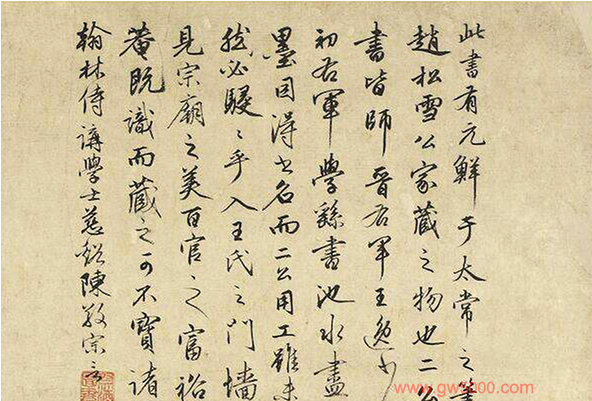 此書有元鮮于太常之
趙松雪公家藏之物也二公
書皆師晉右軍王逸少
初右軍學繇書池水盡
墨因得書名而二公用工雖未
然必駸〻乎入王氏之門墻
見宗廟之美百官之富裕
菴既識而藏之可不寶諸
翰林侍講學士慈谿陳敬宗